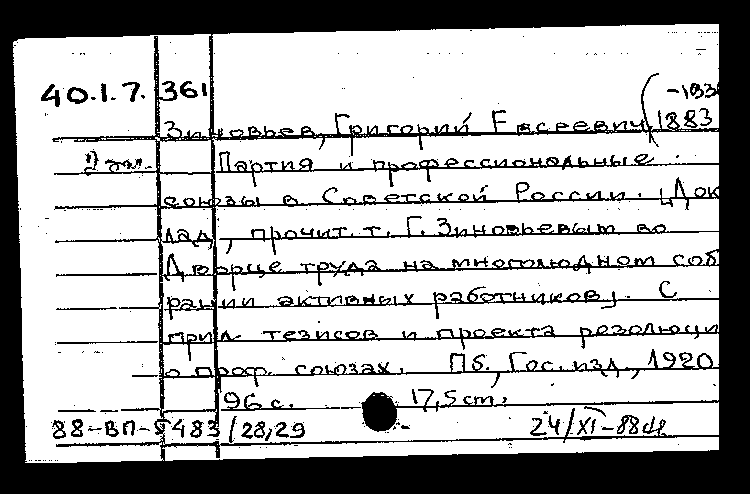 40.1.7. 361
-1936
Зиновьев, Григорий Евсеевич, 1883
2 экз. Партия и профессиональные
союзы в Советской России. [Док
лад, прочит. т. Г. Зиновьевым во
Дворце труда на многолюдном соб
рании активных работников]. С
прил. тезисов и проекта резолюци
о проф. союзах. Пб., Гос. изд., 1920
96 с. 17,5 cm.
88-ВП-5483/28,29 24/XI-88